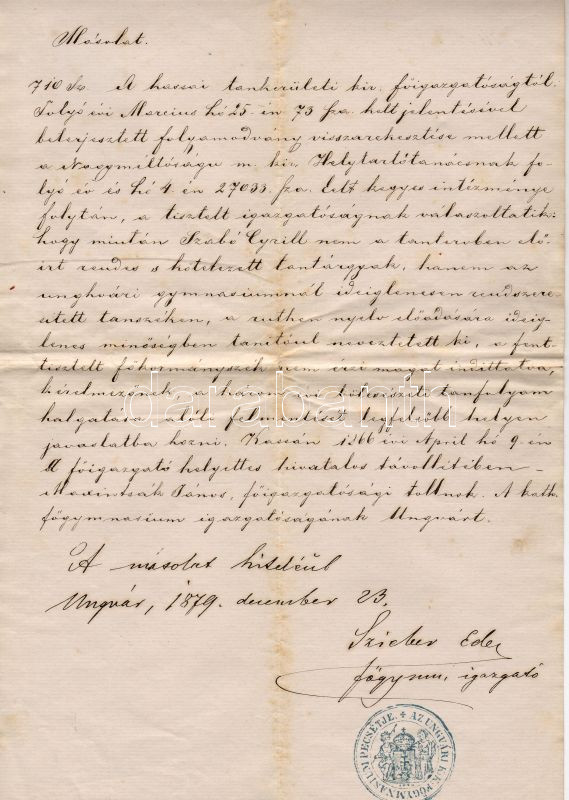 Másolat.
710 Sz. A kassai tankerületi kir. főigazgatóságtól.
Folyó évi Március hó 25-én 73 sza. kelt jelentésével
beterjesztett folyamodvány visszarekesztése mellett
a Nagyméltóságu m. kir. Helytartótanácsnak fo-
lyó év és hó 4-én 27033. sza. kelt kegyes intézménye
folytán, a tisztelt igazgatóságnak válaszoltatik:
hogy miután Szabó Cyrill nem a tantervben elő-
irt rendes s kötelezett tantárgyak, hanem az
unghvári gymnasiumnál ideiglenesen rendszere-
sitett tanszéken, a ruthen nyelv előadására ideig-
lenes minőségben tanitóul neveztetett ki, a fent-
tisztelt főkormányszék nem érzi magát indittatva,
kérelmezőnek, a három évi bölcsészeti tanfolyam
halgatása alóli felmentését legfelsőbb helyen
javaslatba hozni. Kassán 1866 évi April hó 9-én
A főigazgató helyettes hivatalos távollétében -
János, főigazgatósági tollnok. A kath.
főgymnasium igazgatóságának Ungvárt.
A másolat hiteléül
Ungvár, 1879. december 23.
Szieber Ede
főgymn. igazgató
AZ UNGVÁRI K. K. FŐGYMNÁSIUM PECSÉTJE.
darabanth